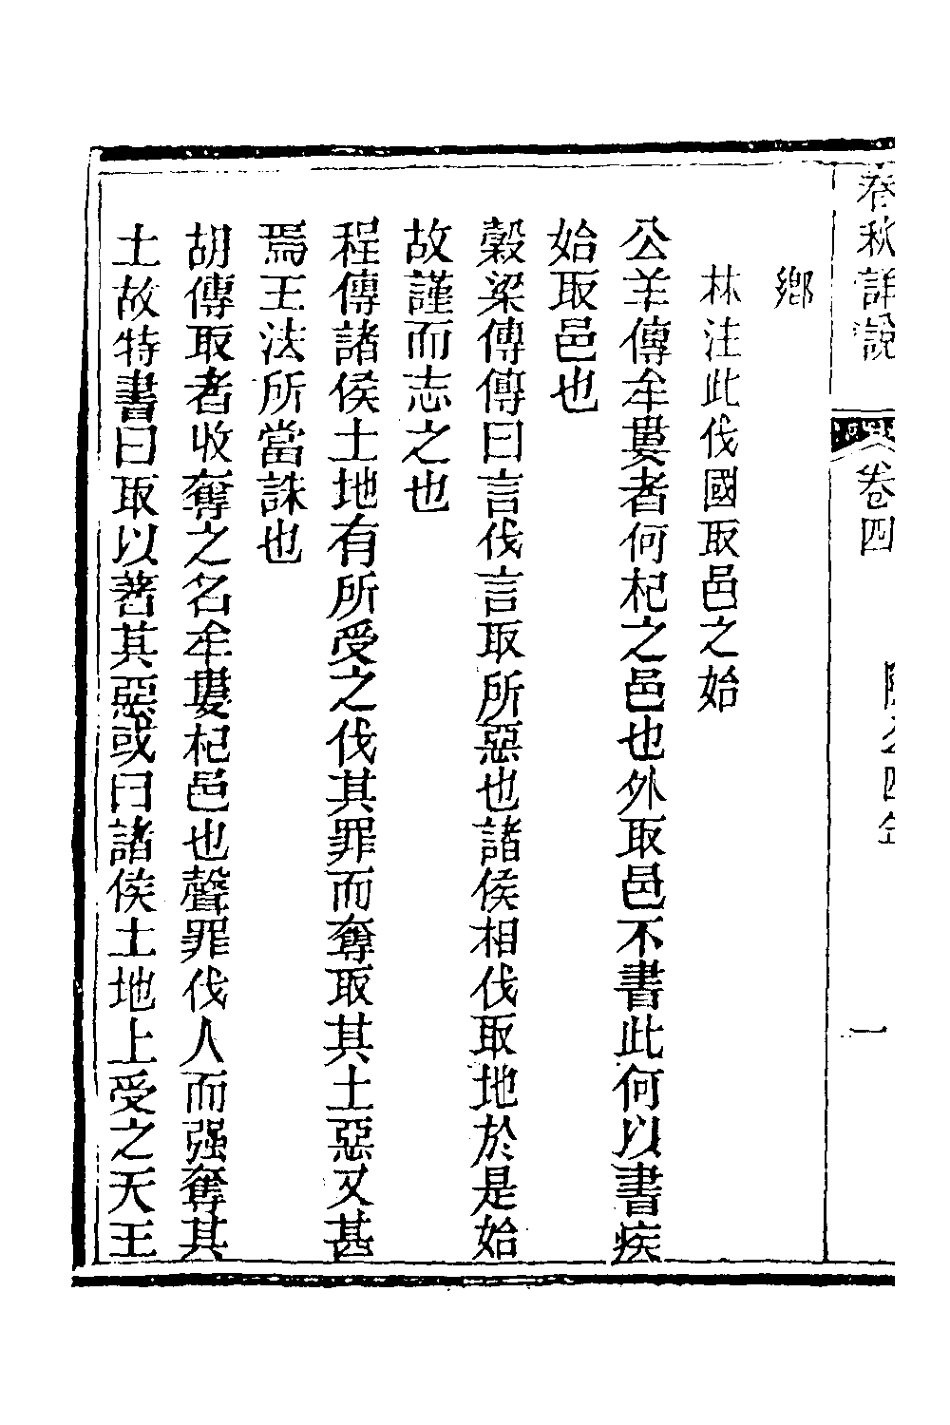 春秋詳說
卷四
隱公四年
一
鄉
林注此伐國取邑之始
公羊傳牟婁者何杞之邑也外取邑不書此何以書疾
始取邑也
糓梁傳傳曰言伐言取所惡也諸侯相伐取地於是始
故謹而志之也
程傳諸侯土地有所受之伐其罪而奪取其土惡又甚
焉王法所當誅也
胡傳取者收奪之名牟婁杞邑也聲罪伐人而强奪其
土故特書曰取以著其惡或曰諸侯土地上受之天王